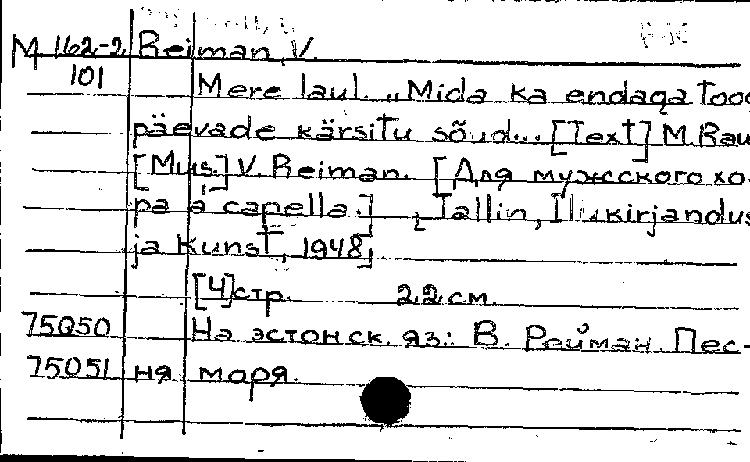 M 162-2 Reiman, V.
101 Mere laul. „Mida ka endaga too
päevade kärsitu sõud... [Text] M. Rau
[Mus.] V. Reiman. [Для мужского хо-
ра a capella.] [Tallin, Ilukirjandus
ja Kunst, 1948]
[4] стр. 22 см.
75050 На эстонск. яз.: В. Рейман. Пес-
75051 ня моря.